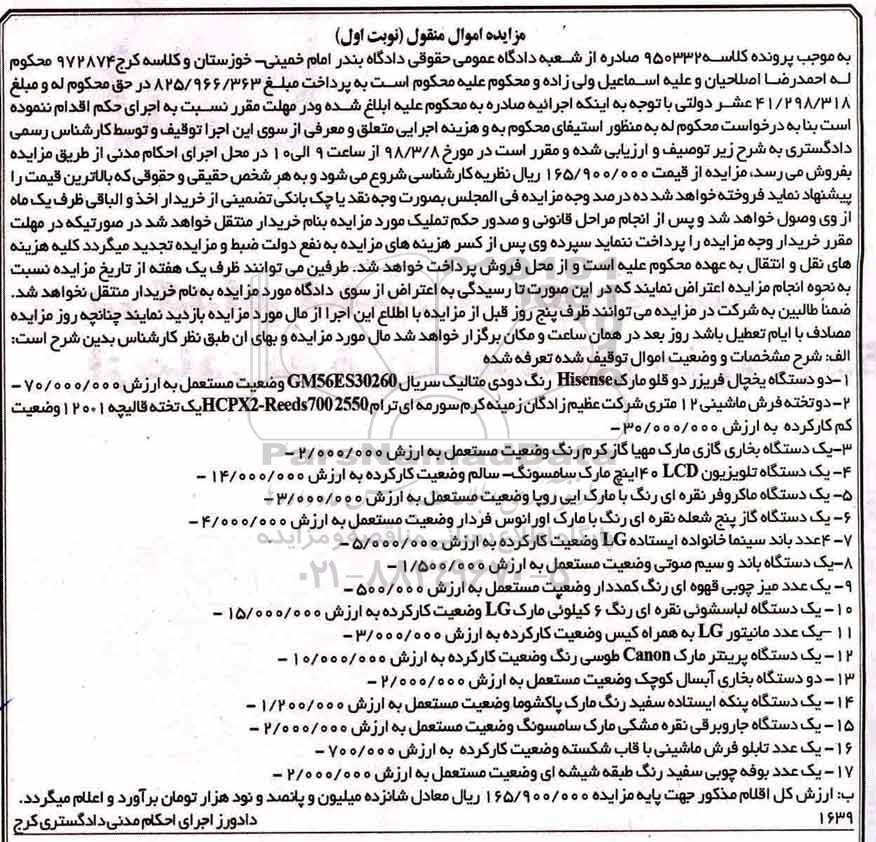 مزایده اموال منقول (نوبت اول)
به موجب پرونده کلاسه ۹۵۰۳۳۲ صادره از شعبه دادگاه عمومی حقوقی دادگاه بندر امام خمینی- خوزستان و کلاسه کرج ۹۷۲۸۷۴ محکوم
له احمدرضا اصلاحیان و علیه اسماعیل ولی زاده و محکوم علیه محکوم است به پرداخت مبلغ ۸۲۵/۹۶۶/۳۶۳ در حق محکوم له و مبلغ
۴۱/۲۹۸/۳۱۸ عشر دولتی با توجه به اینکه اجرائیه صادره به محکوم علیه ابلاغ شده ودر مهلت مقرر نسبت به اجرای حکم اقدام ننموده
است بنا به درخواست محکوم له به منظور استیفای محکوم به و هزینه اجرایی متعلق و معرفی از سوی این اجرا توقیف و توسط کارشناس رسمی
دادگستری به شرح زیر توصیف و ارزیابی شده و مقرر است در مورخ ۹۸/۳/۸ از ساعت ۹ الی۱۰ در محل اجرای احکام مدنی از طریق مزایده
بفروش می رسد، مزایده از قیمت ۱۶۵/۹۰۰/۰۰۰ ریال نظریه کارشناسی شروع می شود و به هر شخص حقیقی و حقوقی که بالاترین قیمت را
پیشنهاد نماید فروخته خواهد شد ده درصد وجه مزایده فی المجلس بصورت وجه نقد یا چک بانکی تضمینی از خریدار اخذ و الباقی ظرف یک ماه
از وی وصول خواهد شد و پس از انجام مراحل قانونی و صدور حکم تملیک مورد مزایده بنام خریدار منتقل خواهد شد در صورتیکه در مهلت
مقرر خریدار وجه مزایده را پرداخت ننماید سپرده وی پس از کسر هزینه های مزایده به نفع دولت ضبط و مزایده تجدید میگردد کلیه هزینه
های نقل و انتقال به عهده محکوم علیه است و از محل فروش پرداخت خواهد شد. طرفین می توانند ظرف یک هفته از تاریخ مزایده نسبت
به نحوه انجام مزایده اعتراض نمایند که در این صورت تا رسیدگی به اعتراض از سوی دادگاه مورد مزایده به نام خریدار منتقل نخواهد شد.
ضمناً طالبین به شرکت در مزایده می توانند ظرف پنج روز قبل از مزایده با اطلاع این اجرا از مال مورد مزایده بازدید نمایند چنانچه روز مزایده
مصادف با ایام تعطیل باشد روز بعد در همان ساعت و مکان برگزار خواهد شد مال مورد مزایده و بهای ان طبق نظر کارشناس بدین شرح است:
الف: شرح مشخصات و وضعیت اموال توقیف شده تعرفه شده
۱-دو دستگاه یخچال فریزر دو قلو مارک Hisense رنگ دودی متالیک سریال GM56ES30260 وضعیت مستعمل به ارزش ۷۰/۰۰۰/۰۰۰ -
۲-دو تخته فرش ماشینی ۱۲ متری شرکت عظیم زادگان زمینه کرم سورمه ای ترام HCPX2-Reeds700 2550 یک تخته قالیچه ۱۲۰۰۱ وضعیت
کم کارکرده به ارزش ۳۰/۰۰۰/۰۰۰ -
۳-یک دستگاه بخاری گازی مارک مهیا گاز کرم رنگ وضعیت مستعمل به ارزش ۲/۰۰۰/۰۰۰ -
۴- یک دستگاه تلویزیون LCD ۴۰ اینچ مارک سامسونگ- سالم وضعیت کارکرده به ارزش ۱۴/۰۰۰/۰۰۰ -
۵- یک دستگاه ماکروفر نقره ای رنگ با مارک ایی روپا وضعیت مستعمل به ارزش ۳/۰۰۰/۰۰۰ -
۶- یک دستگاه گاز پنج شعله نقره ای رنگ با مارک اورانوس فردار وضعیت مستعمل به ارزش ۴/۰۰۰/۰۰۰ -
۷- ۴عدد باند سینما خانواده ایستاده LG وضعیت کارکرده به ارزش ۵/۰۰۰/۰۰۰ -
۸-یک دستگاه باند و سیم صوتی وضعیت مستعمل به ارزش ۱/۵۰۰/۰۰۰ -
۹- یک عدد میز چوبی قهوه ای رنگ کمددار وضعیت مستعمل به ارزش ۵۰۰/۰۰۰ -
۱۰- یک دستگاه لباسشوئی نقره ای رنگ ۶ کیلوئی مارک LG وضعیت کارکرده به ارزش ۱۵/۰۰۰/۰۰۰ -
۱۱ -یک عدد مانیتور LG به همراه کیس وضعیت کارکرده به ارزش ۳/۰۰۰/۰۰۰ -
۱۲- یک دستگاه پرینتر مارک Canon طوسی رنگ وضعیت کارکرده به ارزش ۱۰/۰۰۰/۰۰۰ -
۱۳- دو دستگاه بخاری آبسال کوچک وضعیت مستعمل به ارزش ۲/۰۰۰/۰۰۰ -
۱۴- یک دستگاه پنکه ایستاده سفید رنگ مارک پاکشوما وضعیت مستعمل به ارزش ۱/۲۰۰/۰۰۰ -
۱۵- یک دستگاه جاروبرقی نقره مشکی مارک سامسونگ وضعیت مستعمل به ارزش ۲/۰۰۰/۰۰۰ -
۱۶- یک عدد تابلو فرش ماشینی با قاب شکسته وضعیت کارکرده به ارزش ۷۰۰/۰۰۰ -
۱۷- یک عدد بوفه چوبی سفید رنگ طبقه شیشه ای وضعیت مستعمل به ارزش ۲/۰۰۰/۰۰۰ -
ب: ارزش کل اقلام مذکور جهت پایه مزایده ۱۶۵/۹۰۰/۰۰۰ ریال معادل شانزده میلیون و پانصد و نود هزار تومان برآورد و اعلام میگردد.
۱۶۳۹ دادورز اجرای احکام مدنی دادگستری کرج
ParsNamadData
۰۲۱-۸۸۳۴۹۶۷۰-۵